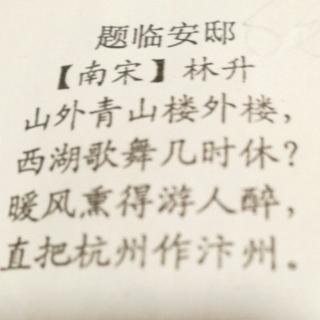 题临安邸
【南宋】林升
山外青山楼外楼，
西湖歌舞几时休？
暖风熏得游人醉，
直把杭州作汴州。